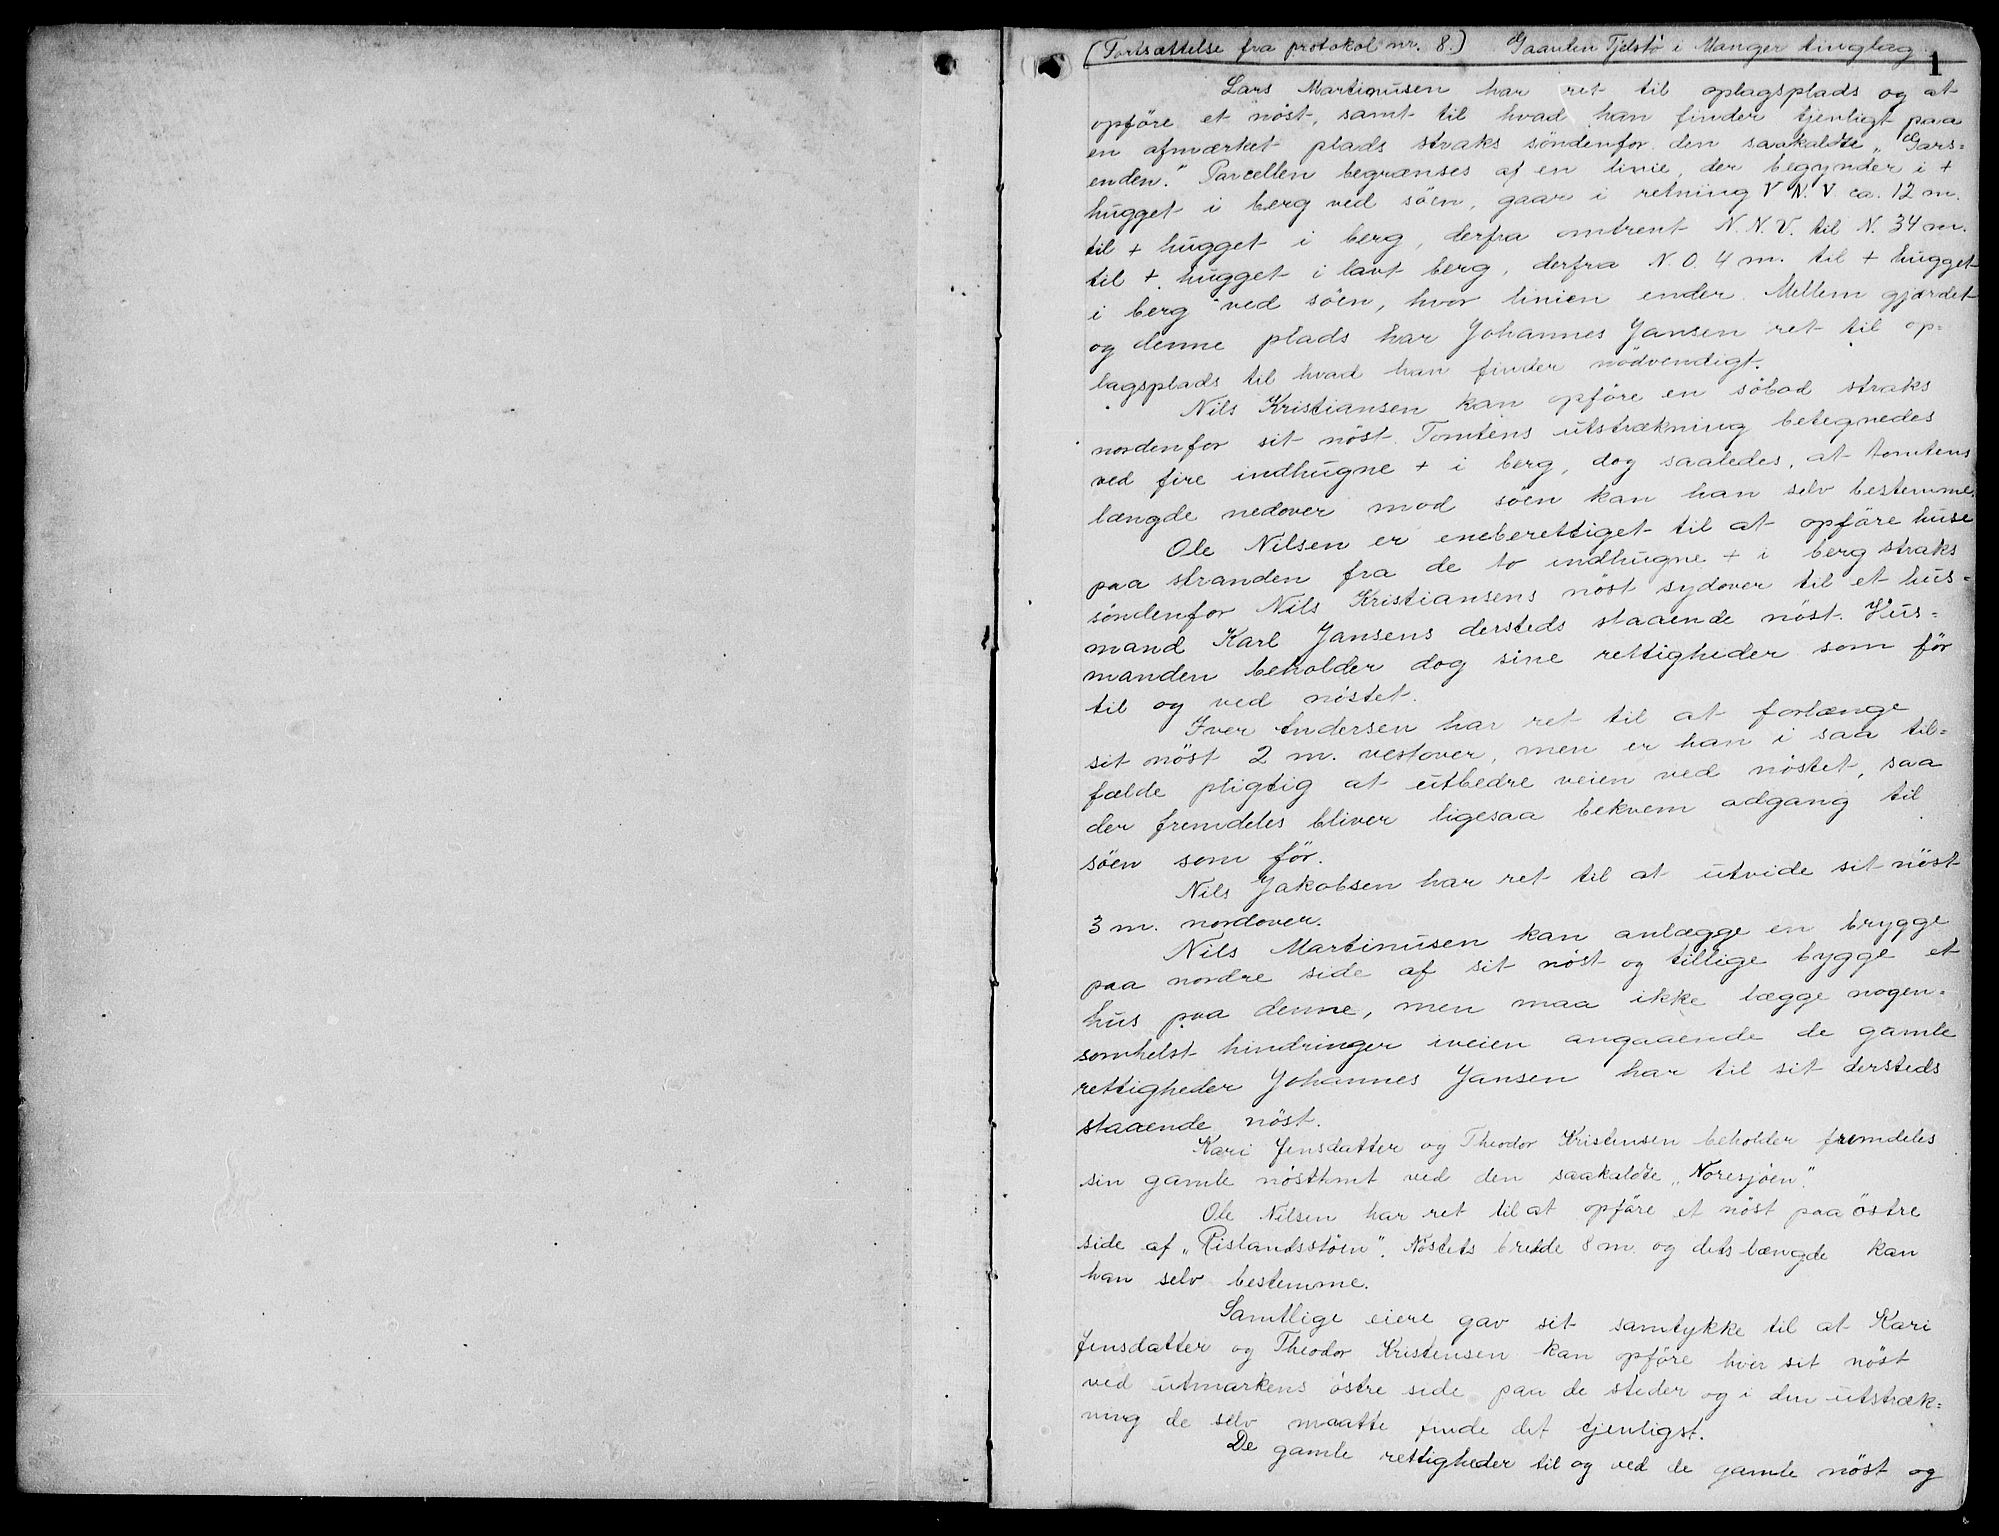 (Fortsættelse fra protokol nr. 8.) Gaarden Tjelstø i Manger tinglag 1
Lars Martinusen har ret til oplagsplads og at
opföre et nöst, samt til hvad han finder tjenligt paa
en afmærket plads straks söndenfor den saakaldte „Gars=
enden." Parcellen begrænses af en linie, der begynder i +
hugget i berg ved söen, gaar i retning V N. V. ca. 12 m.
til + hugget i berg, derfra omtrent N. N. V. til N. 34 m.
til + hugget i lavt berg, derfra N. O. 4 m. til + hugget
i berg ved söen, hvor linien ender. Mellem gjærdet
og denne plads har Johannes Jansen ret til op=
lagsplads til hvad han finder nödvendigt.
Nils Kristiansen kan opföre en söbod straks
nordenfor sit nöst. Tomtens utstrækning betegnedes
ved fire indhugne + i berg, dog saaledes, at tomtens
længde nedover mod söen kan han selv bestemme.
Ole Nilsen er eneberettiget til at opföre huse
paa stranden fra de to indhugne + i berg straks
söndenfor Nils Kristiansens nöst sydover til et hus=
mand Karl Jansens dersteds staaende nöst. Hus=
manden beholder dog sine rettigheder som för
til og ved nöstet.
Iver Andersen har ret til at forlænge
sit nöst 2 m. vestover, men er han i saa til=
fælde pligtig at utbedre veien ved nöstet, saa
der fremdeles bliver ligesaa bekvem adgang til
söen som för.
Nils Jakobsen har ret til at utvide sit nöst
3 m. nordover.
Nils Martinusen kan anlægge en brygge
paa nordre side af sit nöst og tillige bygge et
hus paa denne, men maa ikke lægge nogen=
somhelst hindringer iveien angaaende de gamle
rettigheder Johannes Jansen har til sit dersteds
staaende nöst.
Kari Jensdatter og Theodor Kristensen beholder fremdeles
sin gamle nösttomt ved den saakaldte „Noresjöen".
Ole Nilsen har ret til at opföre et nöst paa östre
side af „Rislandsstöen". Nöstets bredde 8 m. og dets længde kan
han selv bestemme.
Samtlige eiere gav sit samtykke til at Kari
Jensdatter og Theodor Kristensen kan opföre hver sit nöst
ved utmarkens östre side paa de steder og i den utstræk=
ning de selv maatte finde det tjenligst.
De gamle rettigheder til og ved de gamle nöst og